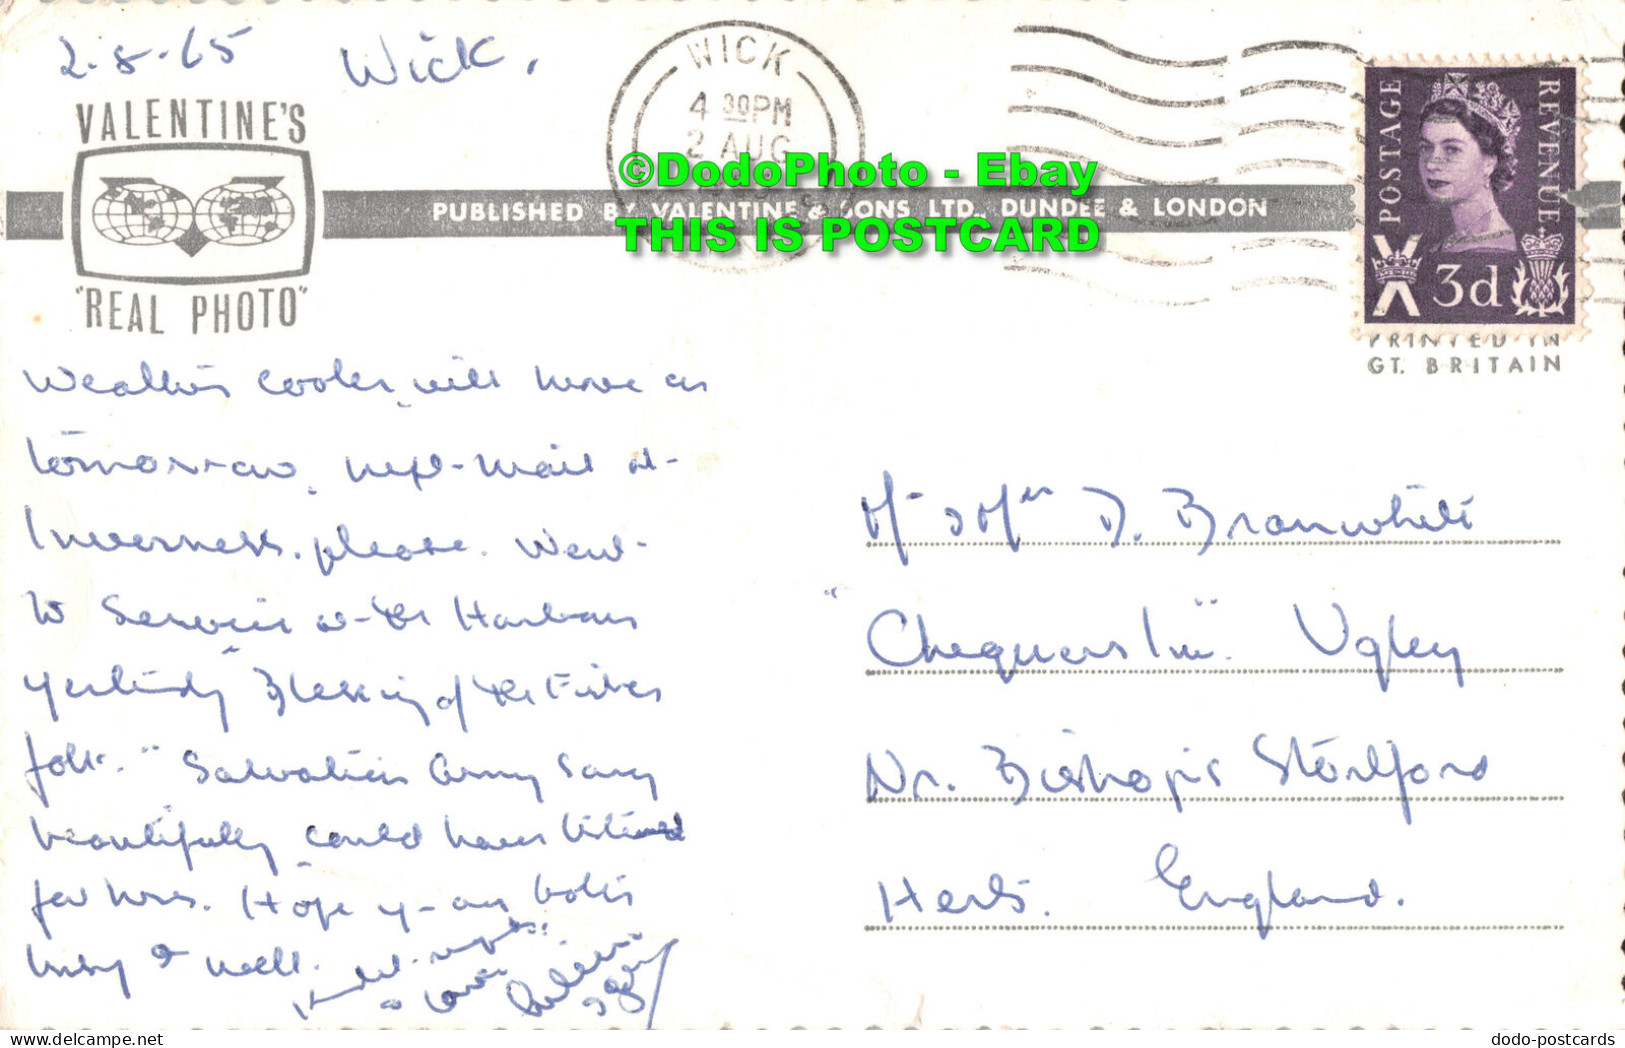 2.8.65 Wick.
WICK
4 30PM
2 AUG
POSTAGE
REVENUE
3d
VALENTINE'S
"REAL PHOTO"
©DodoPhoto - Ebay
PUBLISHED BY VALENTINE & SONS, LTD. DUNDEE & LONDON
THIS IS POSTCARD
PRINTED IN
GT. BRITAIN
Weather cooler, will move on
tomorrow, next mail at
Inverness. please. Went
to Service at the Harbour
yesterday "Blessing of the Fisher
folk." Salvation Army sang
beautifully, could have listened
for hrs. Hope y- are both
busy & well. Kindest
& love
Mr & Mrs D. Branwhite
"Chequers Inn". Ugley
Nr. Bishops Stortford
Herts. England.
dodo-postcards
www.delcampe.net